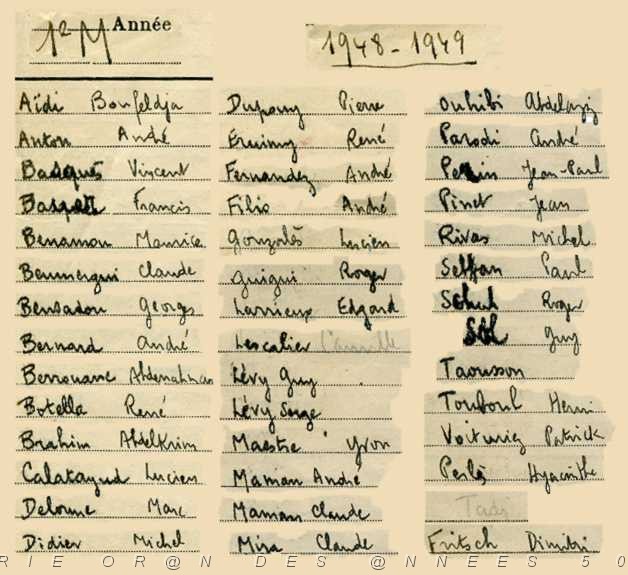 1e M Année
1948-1949
Aïdi Boufeldja
Anton André
Basquès Vincent
Basquez Francis
Benamou Maurice
Bennergui Claude
Bensadou Georges
Bernard André
Berrouane
Botella René
Brahim AbdelKrim
Calatayud Lucien
Delorme Marc
Didier Michel
Dupouy Pierre
René
Fernandez André
Filio André
Gonzalès Lucien
Guigui Roger
Larrieux Edgard
Lescalier Camille
Lévy Guy
Lévy Serge
Maestre Yvon
Maman André
Maman Claude
Mira Claude
Ouhibi Abdelaziz
Parodi André
Perrin Jean-Paul
Pinet Jean
Rivas Michel
Paul
Roger
Guy
Taousson
Touboul Henri
Voituriez Patrick
Perlès Hyacinthe
Tadj
Fritsch Dimitri
RIE OR@N DES @NNEES 50